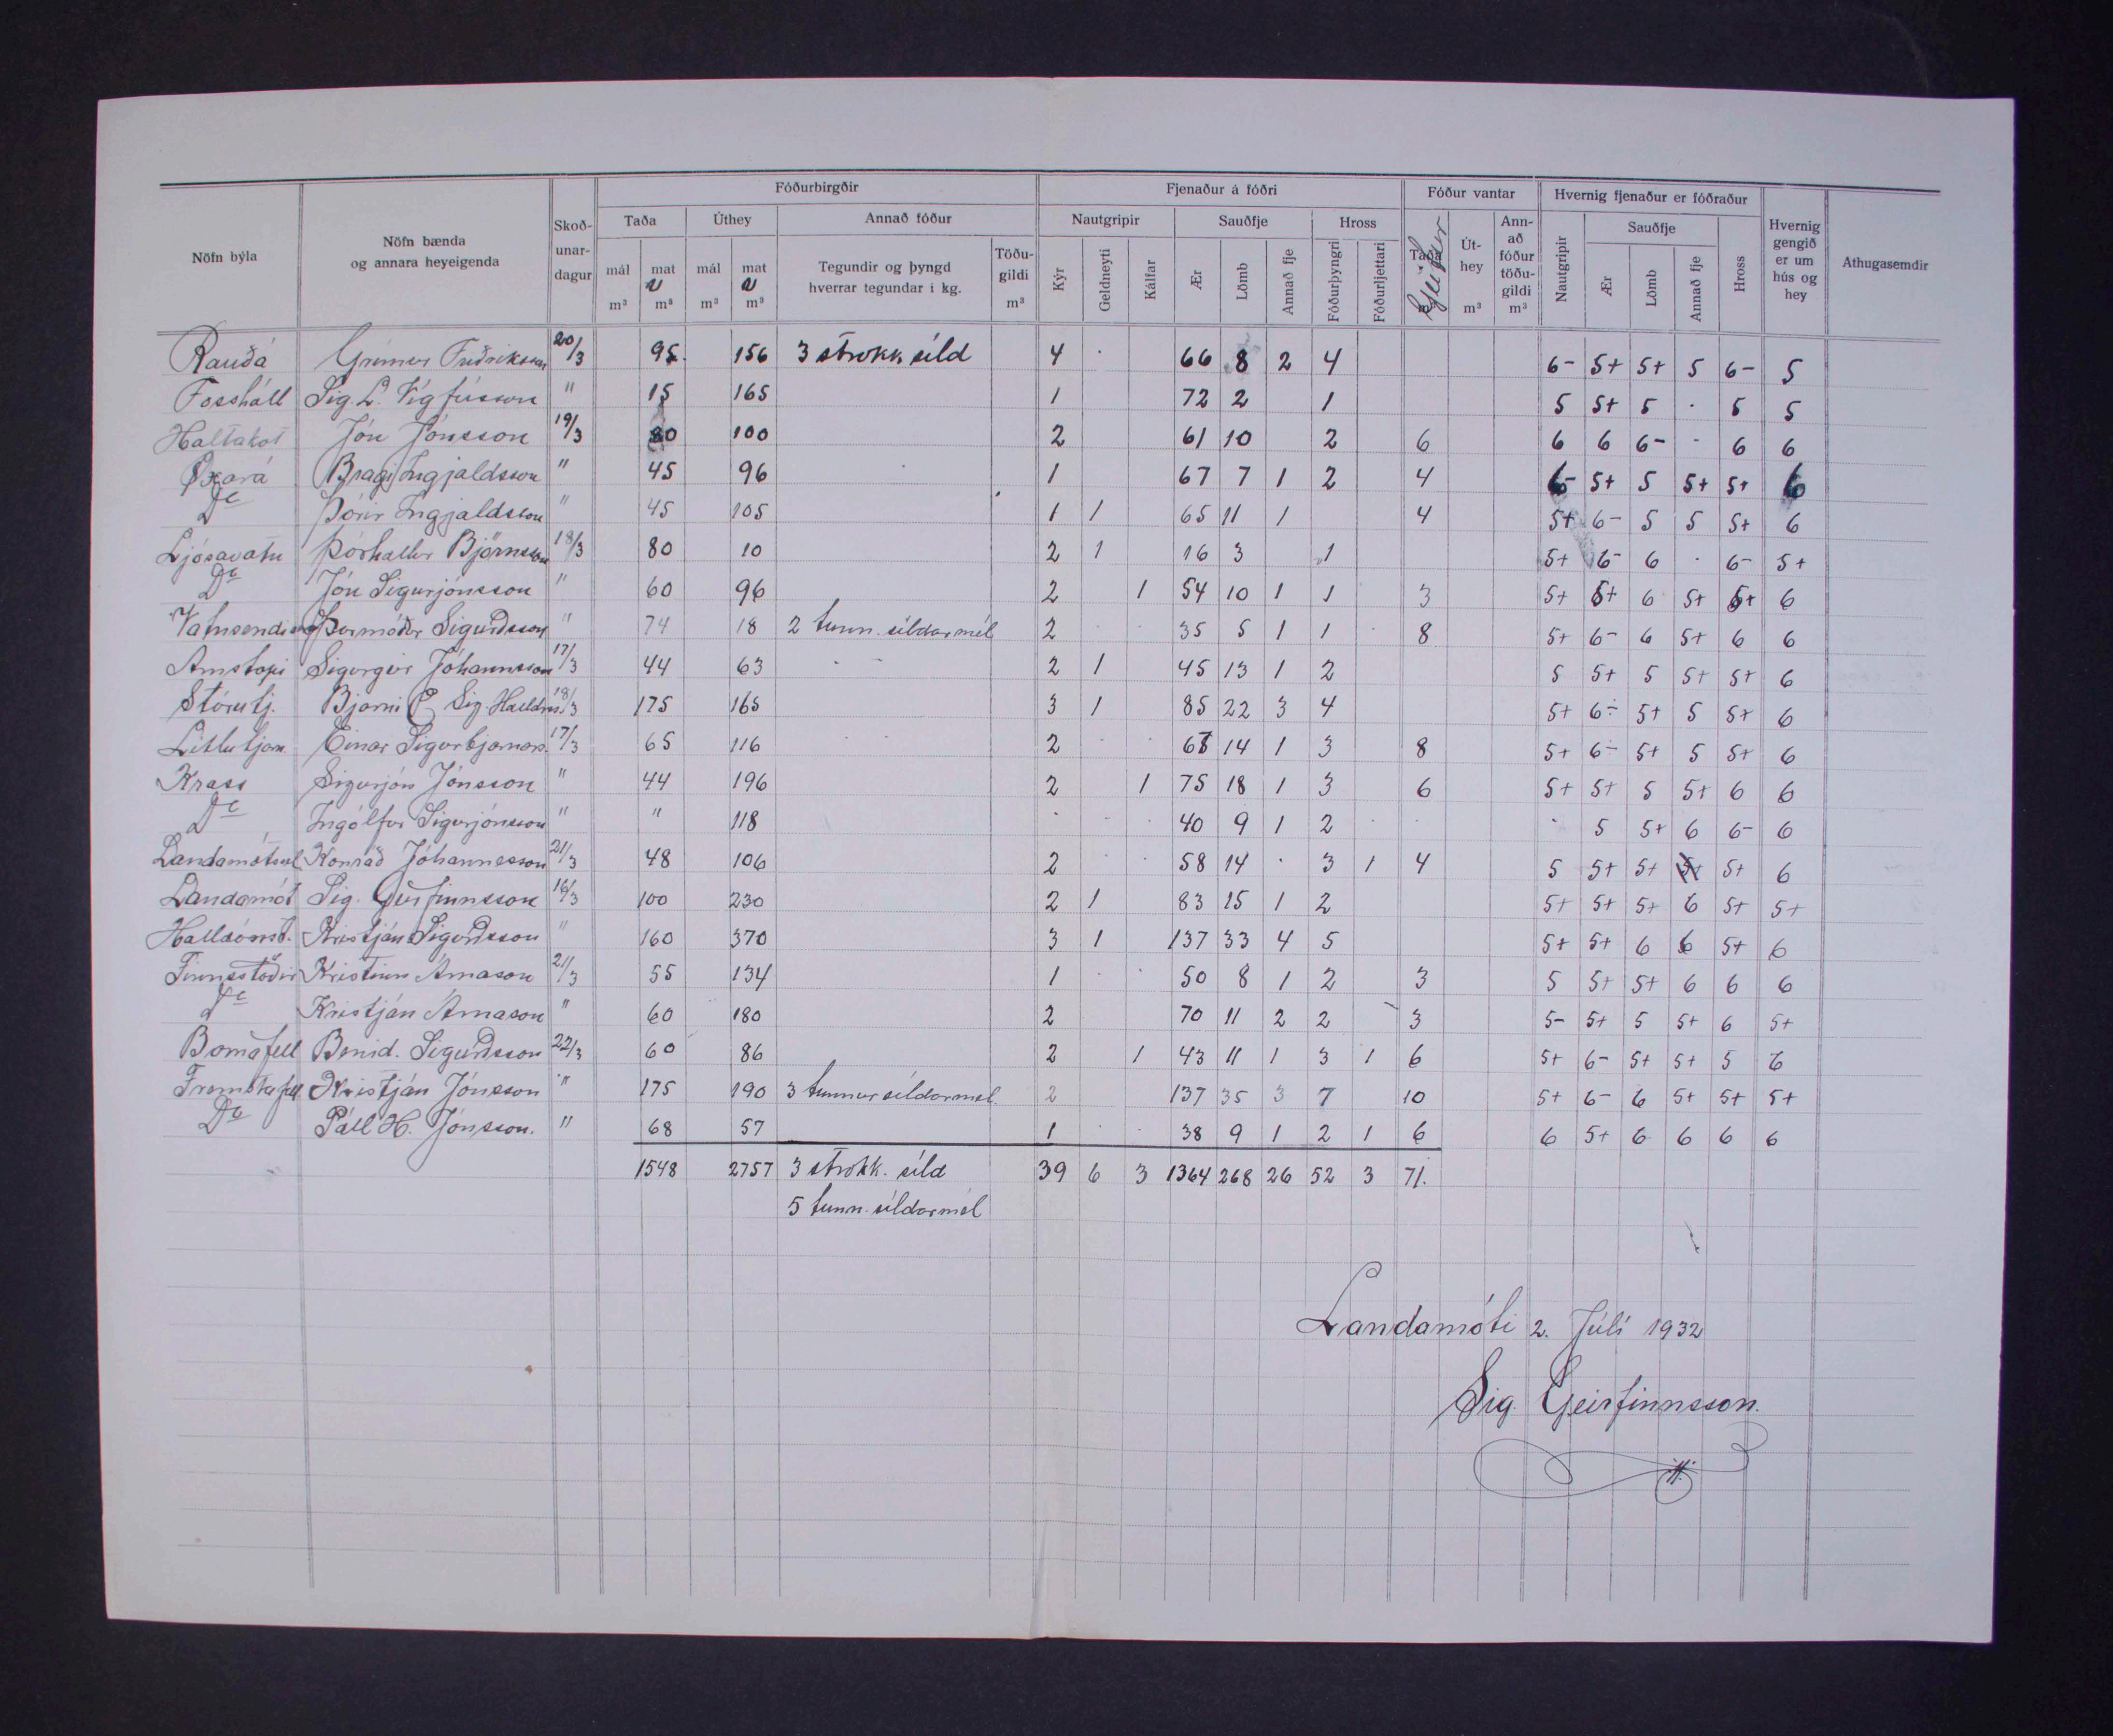 Fóðurbirgðir Fjenaður á fóðri Fóður vantar Hvernig fjenaður er fóðraður
Nöfn býla
Nöfn bænda og annara heyeigenda
Skoð-unar-dagur
Taða Úthey Annað fóður
mál m³ mat m³ mál m³ mat m³
Tegundir og þyngd hverrar tegundar í kg.
Töðu-gildi m³
Nautgripir Sauðfje Hross
Kýr Geldneyti Kálfar Ær Lömb Annað fje Fóðurþyngri Fóðurljettari
Taða Út-hey m³ Ann-að fóður töðu-gildi m³
Nautgripir Sauðfje Ær Lömb Annað fje Hross
Hvernig gengið er um hús og hey
Athugasemdir
Rauðá Grímur Friðriksson 20/3 95. 156 3 strokk síld 4 66 8 2 4 6- 5+ 5+ 5 6- 5
Fosshóll Sig. L. Vigfússon " 15 165 1 72 2 1 5 5+ 5 . 5 5
Holtakot Jón Jónsson 19/3 80 100 2 61 10 2 6 6 6 6- - 6 6
Öxará Bragi Ingjaldsson " 45 96 1 67 7 1 2 4 6- 5+ 5 5+ 5+ 6
Do Þórir Ingjaldsson " 45 105 1 1 65 11 1 4 5+ 6- 5 5 5+ 6
Ljósavatn Þórhallur Björnsson 18/3 80 10 2 1 16 3 1 5+ 6- 6 . 6- 5+
Do Jón Sigurjónsson " 60 96 2 1 54 10 1 1 3 5+ 5+ 6 5+ 5+ 6
Vatnsendi Þormóður Sigurðsson " 74 18 2 tunn. síldarmél 2 35 5 1 1 8 5+ 6- 6 5+ 6 6
Arnstapi Sigurgeir Jóhannsson 17/3 44 63 2 1 45 13 1 2 5 5+ 5 5+ 5+ 6
Stórutj. Bjarni & Sig. Halldrs. 18/3 175 165 3 1 85 22 3 4 5+ 6÷ 5+ 5 5+ 6
Litlutjörn Einar Sigurbjarnars. 17/3 65 116 2 67 14 1 3 8 5+ 6÷ 5+ 5 5+ 6
Kross Sigurjón Jónsson " 44 196 2 1 75 18 1 3 6 5+ 5+ 5 5+ 6 6
Do Ingólfur Sigurjónsson " " 118 40 9 1 2 5 5+ 6 6- 6
Landamótssel Konráð Jóhannesson 21/3 48 106 2 58 14 . 3 1 4 5 5+ 5+ 5+ 6
Landamót Sig. Geirfinnsson 16/3 100 230 2 1 83 15 1 2 5+ 5+ 5+ 6 5+ 5+
Halldórsst. Kristján Sigurðsson " 160 370 3 1 137 33 4 5 5+ 5+ 6 6 5+ 6
Finnsstöðir Kristinn Árnason 21/3 55 134 1 50 8 1 2 3 5 5+ 5+ 6 6 6
Do Kristján Árnason " 60 180 2 70 11 2 2 3 5- 5+ 5 5+ 6 5+
Benid. Sigurðsson 22/3 60 86 2 1 43 11 1 3 1 6 5+ 6- 5+ 5+ 5 6
Fremstafell Kristján Jónsson " 175 190 3 tunnur síldarmél. 2 137 35 3 7 10 5+ 6- 6 5+ 5+ 5+
Do Páll H. Jónsson. " 68 57 1 38 9 1 2 1 6 6 5+ 6 6 6 6
1548 2757 3 strokk. síld 39 6 3 1364 268 26 52 3 71.
5 tunn. síldarmél
Landamóti 2. Júlí 1932
Sig. Geirfinnsson.